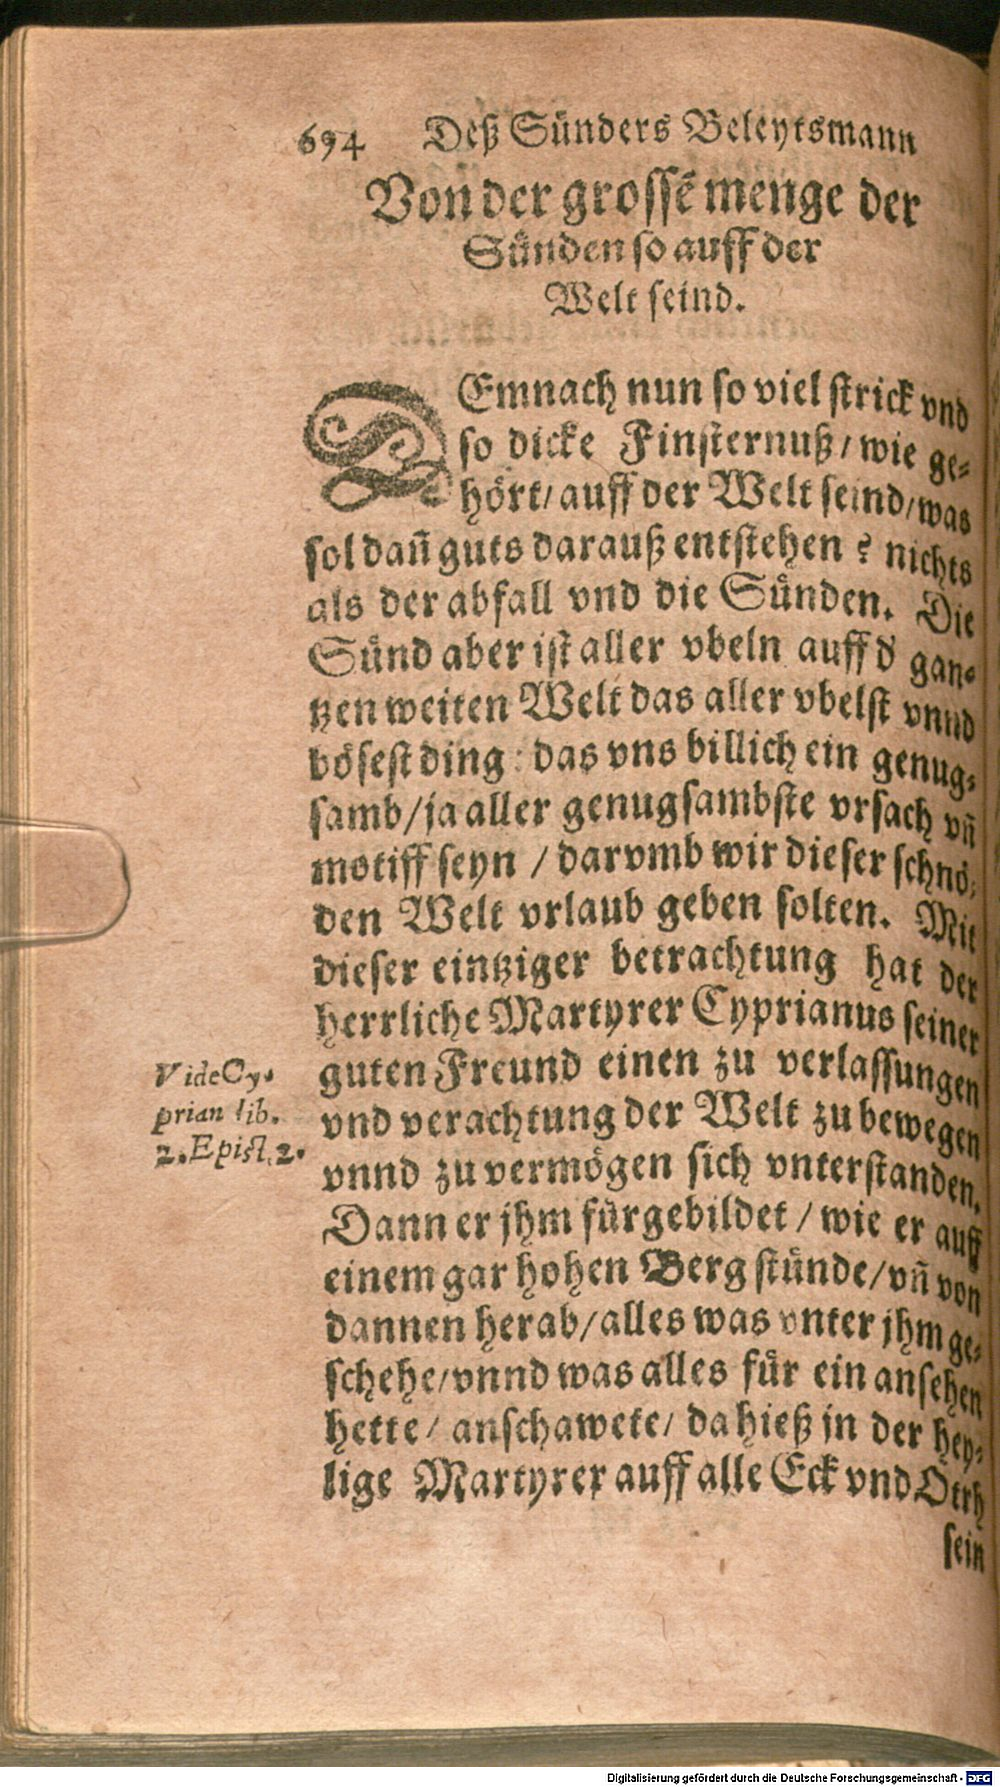 694 Deß Sünders Beleytsmann
Von der grossẽ menge der
Sünden so auff der
Welt seind.
DEmnach nun so viel strick vnd
so dicke Finsternuß / wie ge-
hört / auff der Welt seind / was
sol dañ guts darauß entstehen ? nichts
als der abfall vnd die Sünden. Die
Sünd aber ist aller vbeln auff d' gan-
tzen weiten Welt das aller vbelst vnnd
bösest ding : das vns billich ein genug-
samb / ja aller genugsambste vrsach vñ
motiff seyn / darvmb wir dieser schnö-
den Welt vrlaub geben solten. Mit
dieser eintziger betrachtung hat der
herrliche Martyrer Cyprianus seiner
guten Freund einen zu verlassungen
vnd verachtung der Welt zu bewegen
vnnd zu vermögen sich vnterstanden.
Vide Cy-
prian lib.
2. Epist. 2.
Dann er jhm fürgebildet / wie er auff
einem gar hohen Berg stünde / vñ von
dannen herab / alles was vnter jhm ge-
schehe / vnnd was alles für ein ansehen
hette / anschawete / da hieß in der hey-
lige Martyrer auff alle Eck vnd Otrh
sein
Digitalisierung gefördert durch die Deutsche Forschungsgemeinschaft - DFG